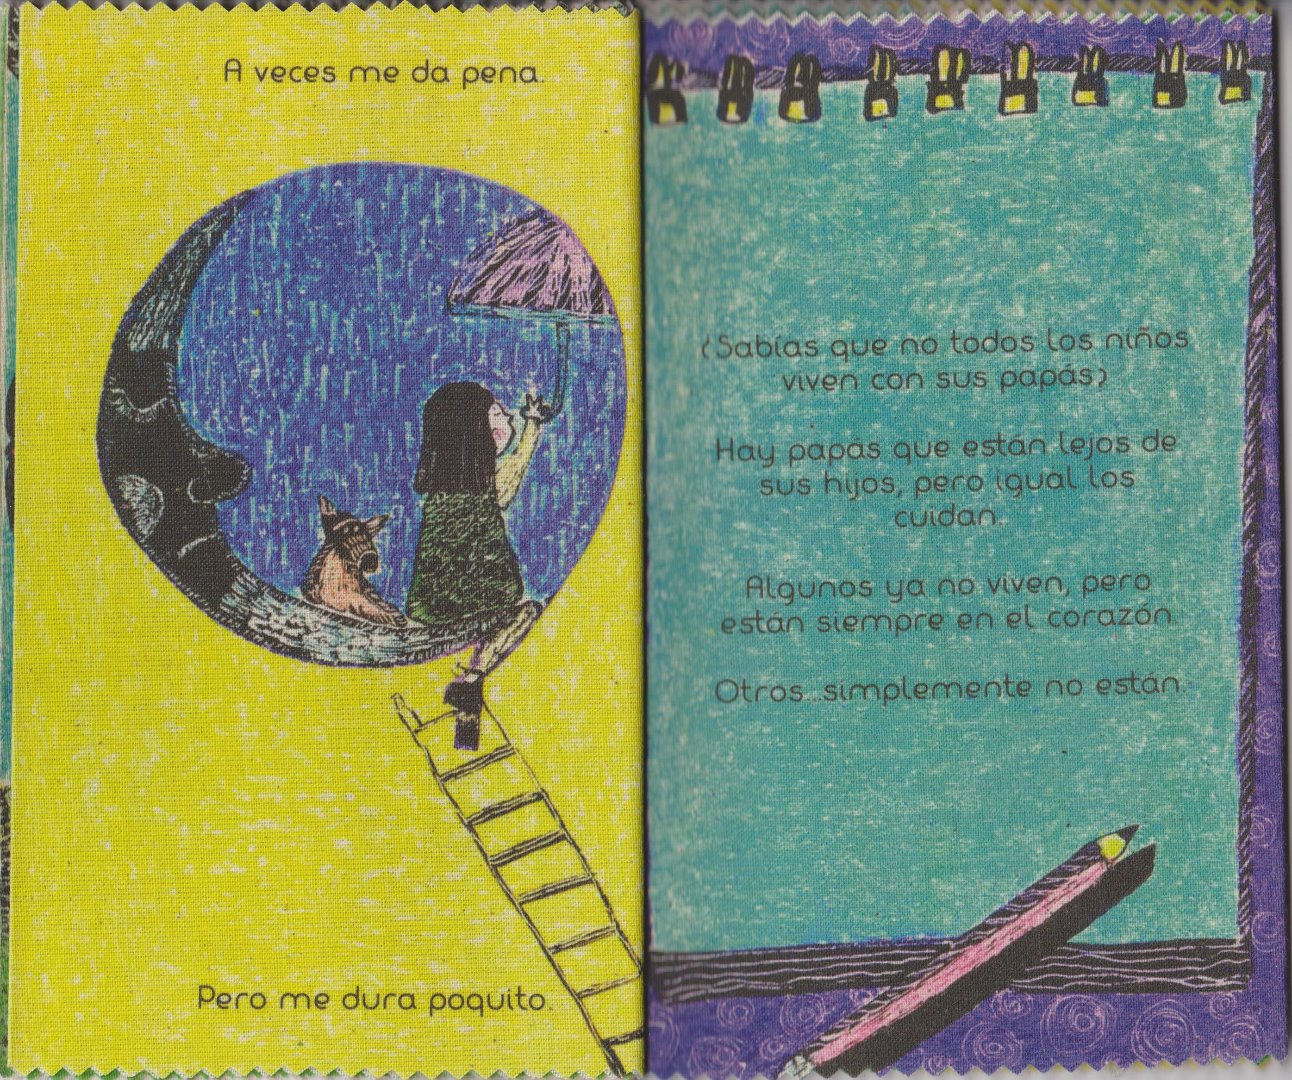 A veces me da pena.
Pero me dura poquito.
(Sabías que no todos los niños
viven con sus papás)
Hay papás que están lejos de
sus hijos, pero igual los
cuidan.
Algunos ya no viven, pero
están siempre en el corazón.
Otros...simplemente no están.